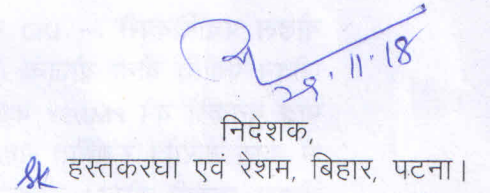 २९.11.18
निदेशक,
SK हस्तकरघा एवं रेशम, बिहार, पटना।